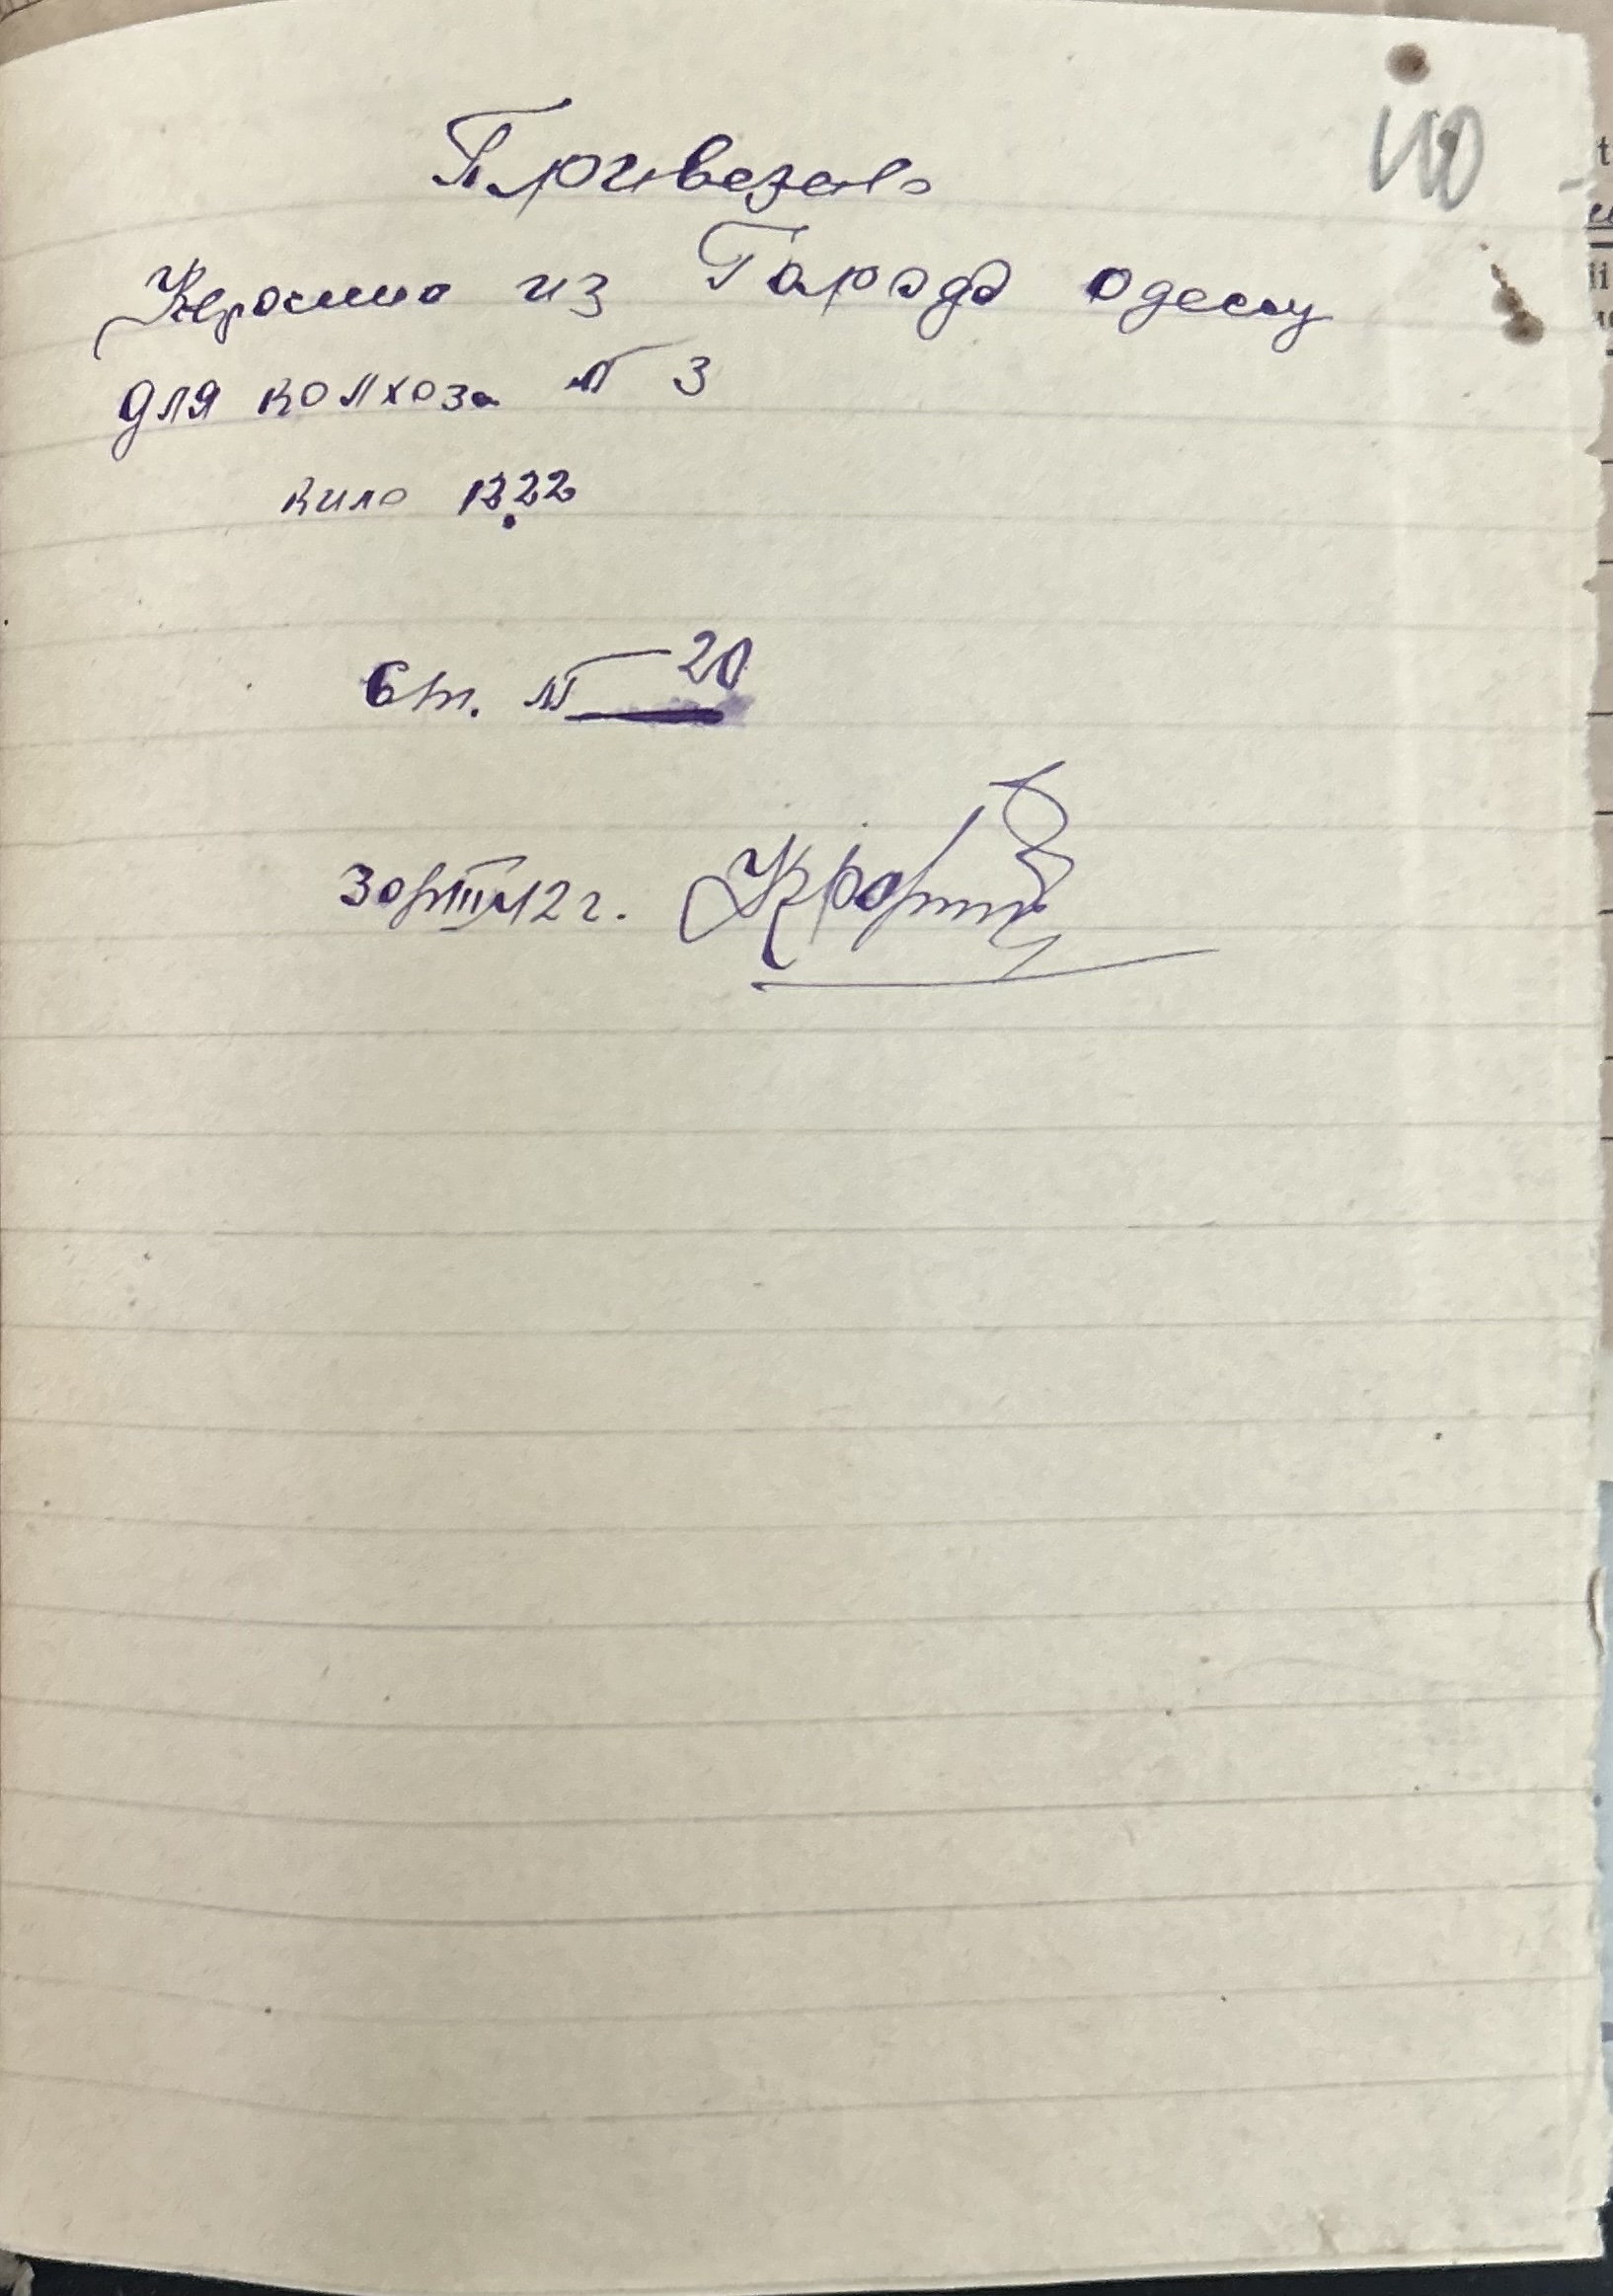 110
Привезено
Керосина из Города одессу
для колхоза № 3
кило 1222
Ст. № 20
30/III 42 г.